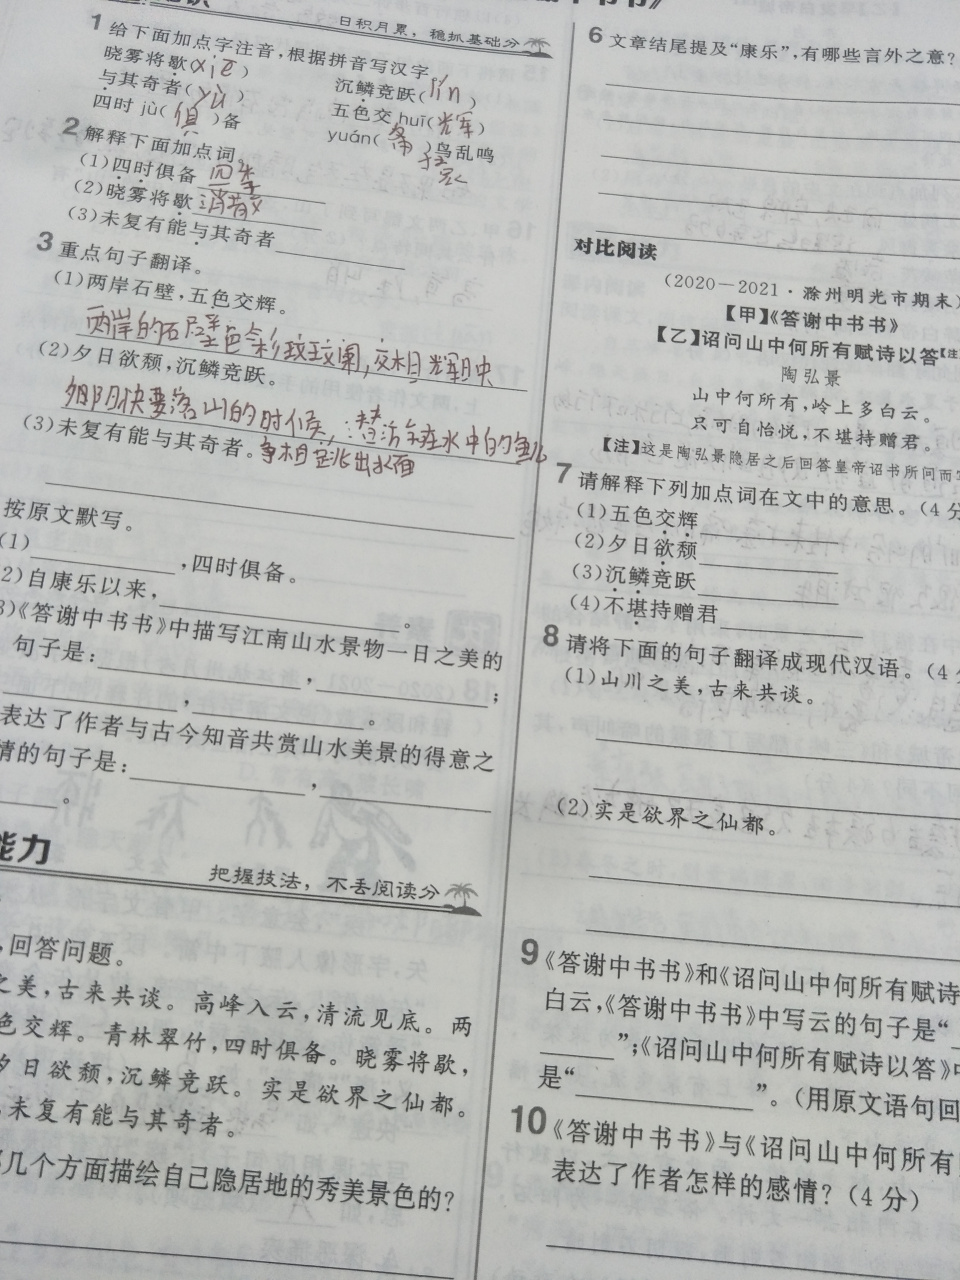 日积月累，稳抓基础分
1 给下面加点字注音，根据拼音写汉字。
晓雾将歇(xiē) 沉鳞竞跃(lín)
与其奇者(yù) 五色交 huī(辉)
四时 jù(俱)备 yuán( )鸟乱鸣
2 解释下面加点词。
(1)四时俱备 四季
(2)晓雾将歇 消散
(3)未复有能与其奇者
3 重点句子翻译。
(1)两岸石壁，五色交辉。
两岸的石壁色彩斑斓，交相辉映
(2)夕日欲颓，沉鳞竞跃。
夕阳快要落山的时候，潜活在水中的鱼儿
(3)未复有能与其奇者。争相跳出水面
按原文默写。
(1) ，四时俱备。
2)自康乐以来， 。
3)《答谢中书书》中描写江南山水景物一日之美的
句子是： ， ；
， 。
表达了作者与古今知音共赏山水美景的得意之
情的句子是： ，
。
能力
把握技法，不丢阅读分
，回答问题。
之美，古来共谈。高峰入云，清流见底。两
色交辉。青林翠竹，四时俱备。晓雾将歇，
夕日欲颓，沉鳞竞跃。实是欲界之仙都。
，未复有能与其奇者。
几个方面描绘自己隐居地的秀美景色的？
6 文章结尾提及“康乐”，有哪些言外之意？
对比阅读
(2020－2021·滁州明光市期末)
【甲】《答谢中书书》
【乙】诏问山中何所有赋诗以答【注
陶弘景
山中何所有，岭上多白云。
只可自怡悦，不堪持赠君。
【注】这是陶弘景隐居之后回答皇帝诏书所问而
7 请解释下列加点词在文中的意思。(4分
(1)五色交辉
(2)夕日欲颓
(3)沉鳞竞跃
(4)不堪持赠君
8 请将下面的句子翻译成现代汉语。(4
(1)山川之美，古来共谈。
(2)实是欲界之仙都。
9 《答谢中书书》和《诏问山中何所有赋诗
白云，《答谢中书书》中写云的句子是“
”；《诏问山中何所有赋诗以答》
是“ ”。(用原文语句回
10 《答谢中书书》与《诏问山中何所有
表达了作者怎样的感情？(4分)